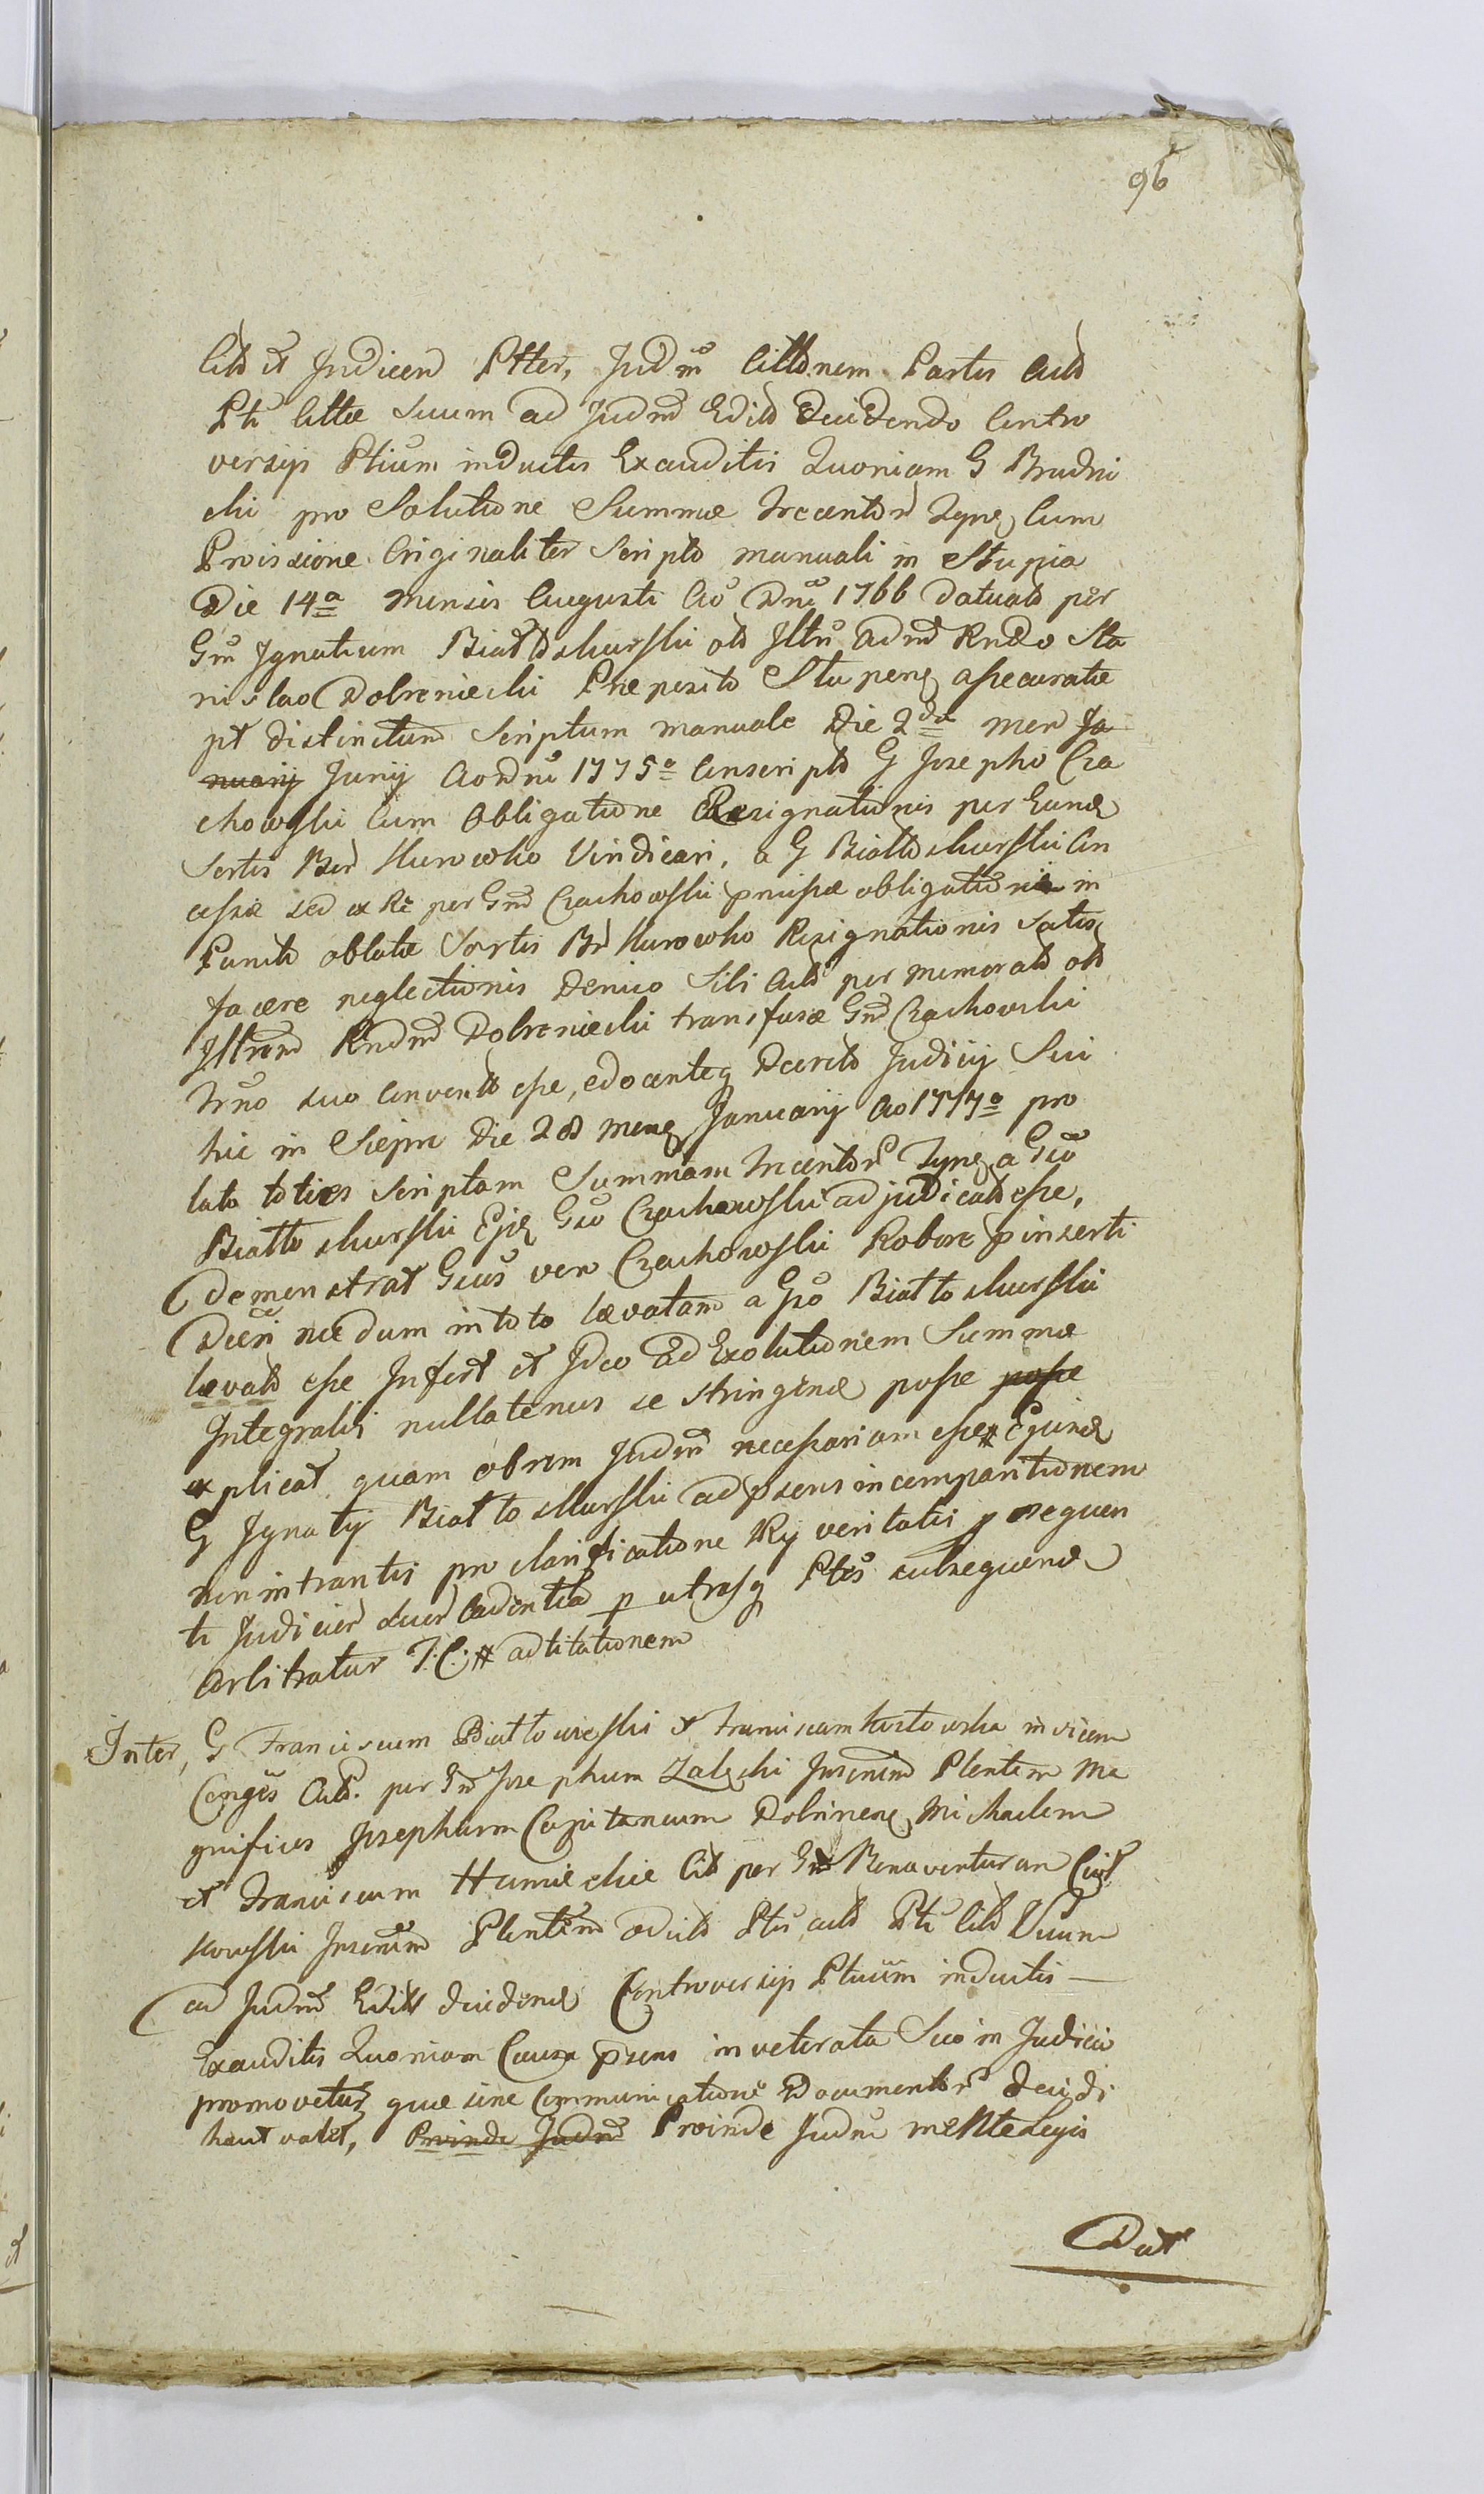 96
Citd et Judicerd Ptter, Judm Cittdnem Partis Actd
Pti Cittæ Suum ad Judmd Edictd Decidendo Contro
versijs Ptium inductis Exauditis Quoniam G Brudni
cki pro Solutione Summæ Trecentord Tynf Cum
Provisione Originaliter Scripto manuali in Stupia
Die 14a mensis Augusti Ao Dni 1766 datuatd per
Gm Ignatium Białtoskurski otd Illtri admd Rndo Sta
nislao Dobreniecki Præposito Stupenq assecuratæ
pt distinctum Scriptum manuale Die 2da men Ja
nuarij Junij Ao Dni 1775o Conscriptd G Josepho Cza
chowski Cum Obligatione Resignationis per Eund
Sortis Bnd Kurowko Vindicari, a G Białtoskurski Con
cessæ sed ex Re per Gnd Czachowski pmissæ obligationis in
Puncto oblatæ Sortis Bd Kurowko Resignationis Satis
facere neglectionis Denuo Sibi Actd per memoratd otd
Illtremd Rndmd Dobreniecki transfusæ Gnd Czachowski
Trno suo Conventd esse, edocenteq Decreto Judicij Sui
hic in Sierpia Die 28 mensq Januarij Ao 1777o pro
lato toties scriptam Summam Trecentord Tynf a Gso
Białtoskurski Ejq Gso Czachowski adjudicatd esse,
Demonstrat Gsus vero Czachowski Robore pinserti
Decri necdum in toto lævatam a Gso Białtoskurski
lævatd esse Infert et Ideo ad Exolutionem Summæ
Integralis nullatenus se stringend posse posse
explicat quam obrem Judm necessariam esse # Ejusd
G Ignatij Białtoskurski ad psens in comparitionem
non intrantis pro clarificatione Rej veritatis p
ti Judicierd suer Cadentia p utrasq Ptes subsequend
arbitratur J: C: # adcitationem
Inter, G Franciscum Białtowieski et Franciscam Kostowska invicem
Conges Actd. per Gm Josephum Zaleski Jurenemd Plentem Ma
gnificos Josephum Capitaneum Dobrinenq Michaelem
et Franciscum Humieckie Citd per Gmd Bonaventuram
kowski Jurenemd Plentemd Ptis actd Pti Citd Suum
ad Judmd Edictd decidend Controversijs Ptium inductis —
Exauditis Quoniam Causa psens inveterata Suo in Judicio
promovetur quæ sine Communicatione Documentord decidi
haut valet, Proinde Judmd Proinde Judm mente Legis
Dat